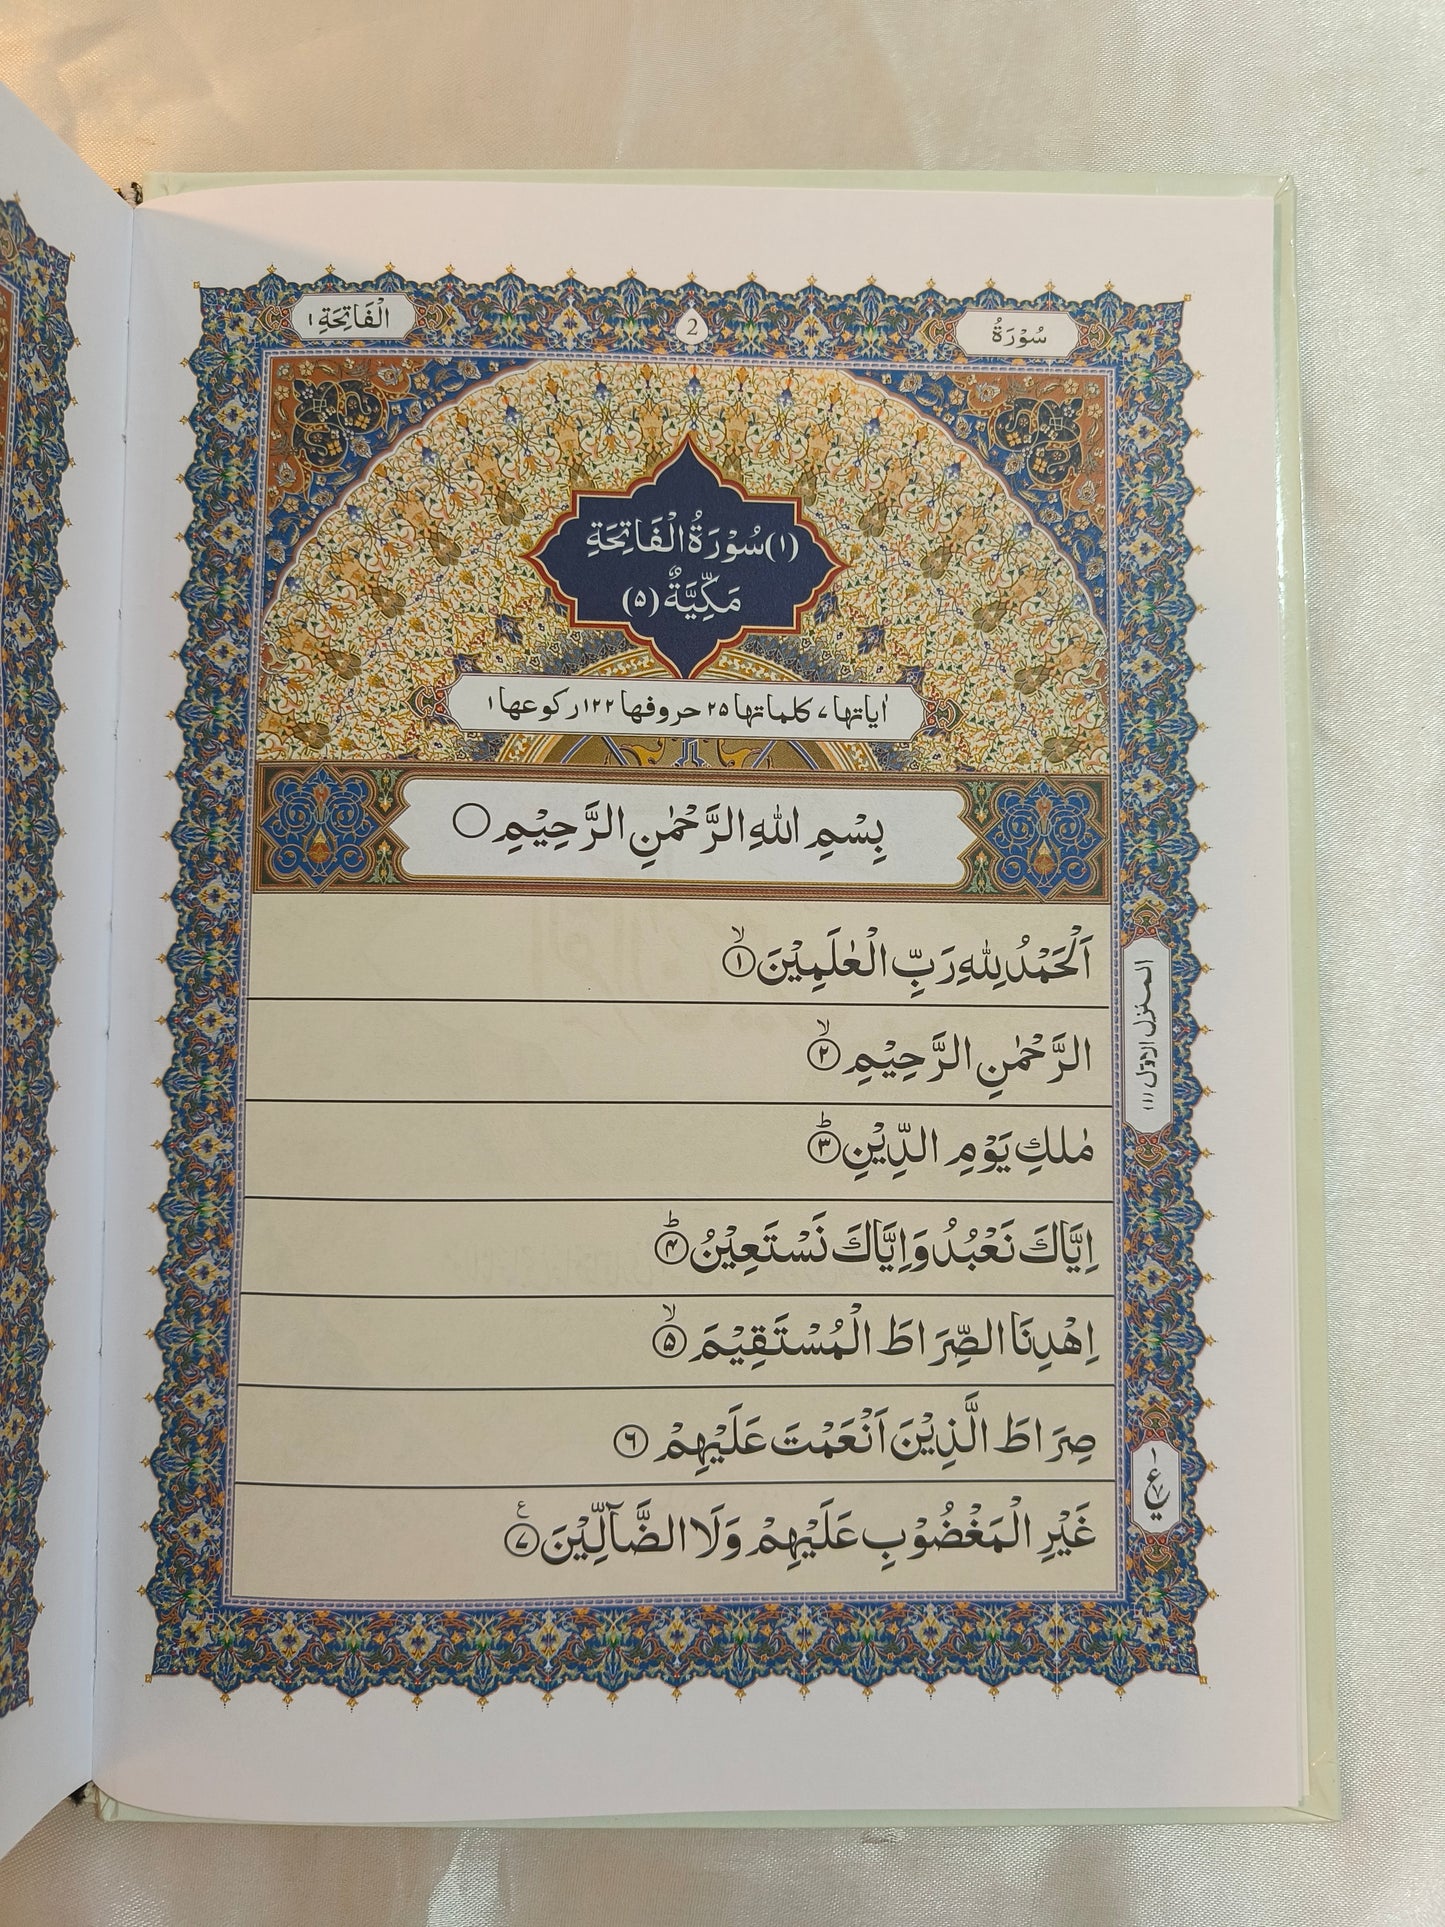 سُوْرَةُ
2
الْفَاتِحَةِ ۱
(۱) سُوْرَةُ الْفَاتِحَةِ
مَكِّيَّةٌ (۵)
اٰیاتھا ۷ کلماتھا ۲۵ حروفھا ۱۲۲ رکوعھا ۱
بِسْمِ اللهِ الرَّحْمٰنِ الرَّحِيْمِ ○
اَلْحَمْدُ لِلّٰهِ رَبِّ الْعٰلَمِيْنَ ۙ﴿۱﴾
الرَّحْمٰنِ الرَّحِيْمِ ۙ﴿۲﴾
مٰلِكِ يَوْمِ الدِّيْنِ ؕ﴿۳﴾
اِيَّاكَ نَعْبُدُ وَاِيَّاكَ نَسْتَعِيْنُ ؕ﴿۴﴾
اِهْدِنَا الصِّرَاطَ الْمُسْتَقِيْمَ ۙ﴿۵﴾
صِرَاطَ الَّذِيْنَ اَنْعَمْتَ عَلَيْهِمْ ﴿۶﴾
غَيْرِ الْمَغْضُوْبِ عَلَيْهِمْ وَلَا الضَّآلِّيْنَ ﴿۷﴾ ع
المنزل الاوّل (۱)
۱
ع
۷